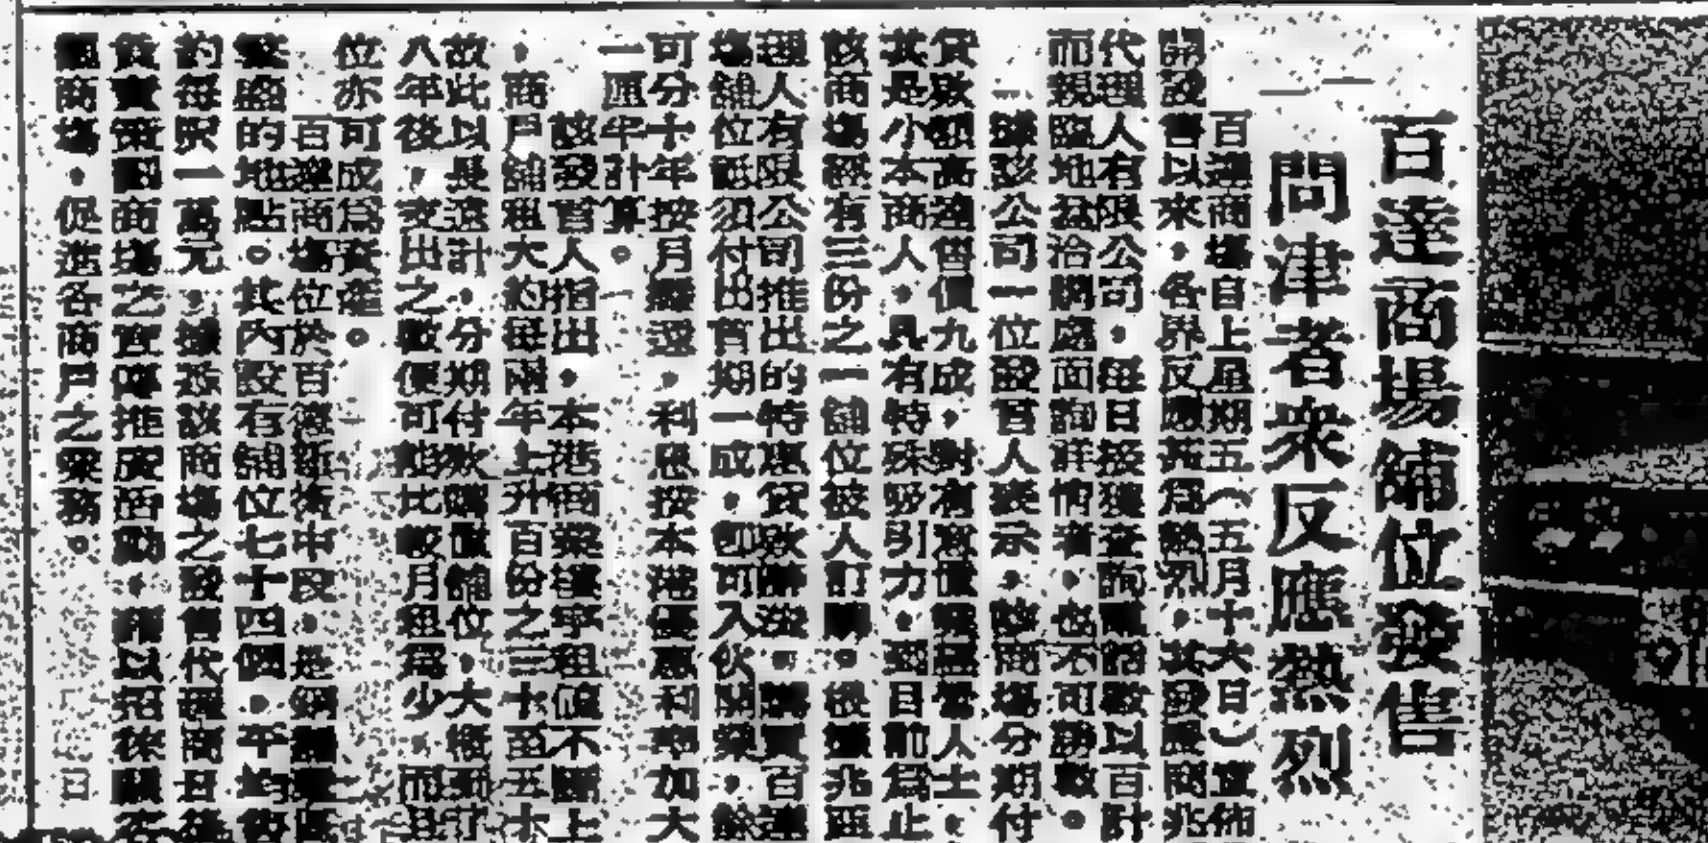 百達商場舖位發售
問津者衆反應熱烈
百達商場自上星期五（五月十六日）宣佈
開設售以來，各界反應甚爲熱烈，其發展商兆
代理人有限公司，每日接獲查詢電話數以百計
而親臨地盆洽購處面詢詳情者，也不可勝數。
據該公司一位發言人表示，該商場分期付
貸款額高達售價九成，對有意從經營人士，
其是小本商人，具有特殊吸引力。到目前爲止
該商場經有三份之一舖位被人訂購。根據兆亞
理人有限公司推出的特惠貸款辦法，購買百達
場舖位祇須付出首期一成，即可入伙開業，餘
可分十年按月攤還，利息按本港優惠利率加大
一厘半計算。
該發言人指出，本港商業樓宇租值不斷上
，商戶舖租大約每兩年上升百份之三十至五十
故此以長遠計，分期付款購置舖位，大槪到了
八年後，支出之數便可能比較月租爲少，而且
位亦可成爲資產。
百達商場位於百德新街中段，是銅鑼灣區
繁盛的地點。其內設有舖位七十四個，平均收
約每呎一萬元。據悉該商場之發售代理商且在
負責策劃商場之宣傳推廣活動，用以招徠顧客
商場，促進各商戶之業務。